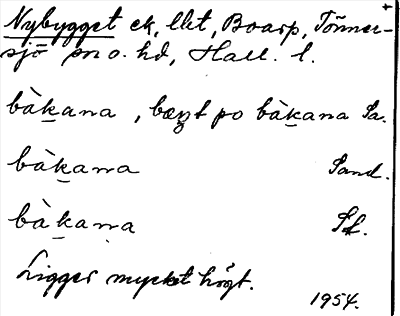 Nybygget ek, llt, Boarp, Tönner-
sjö sn o. hd, Hall. l.
bàḵana , bæṉt po bàḵana Sa.
bàḵana Sand.
bàḵana Sf.
Ligger mycket högt.
1954.